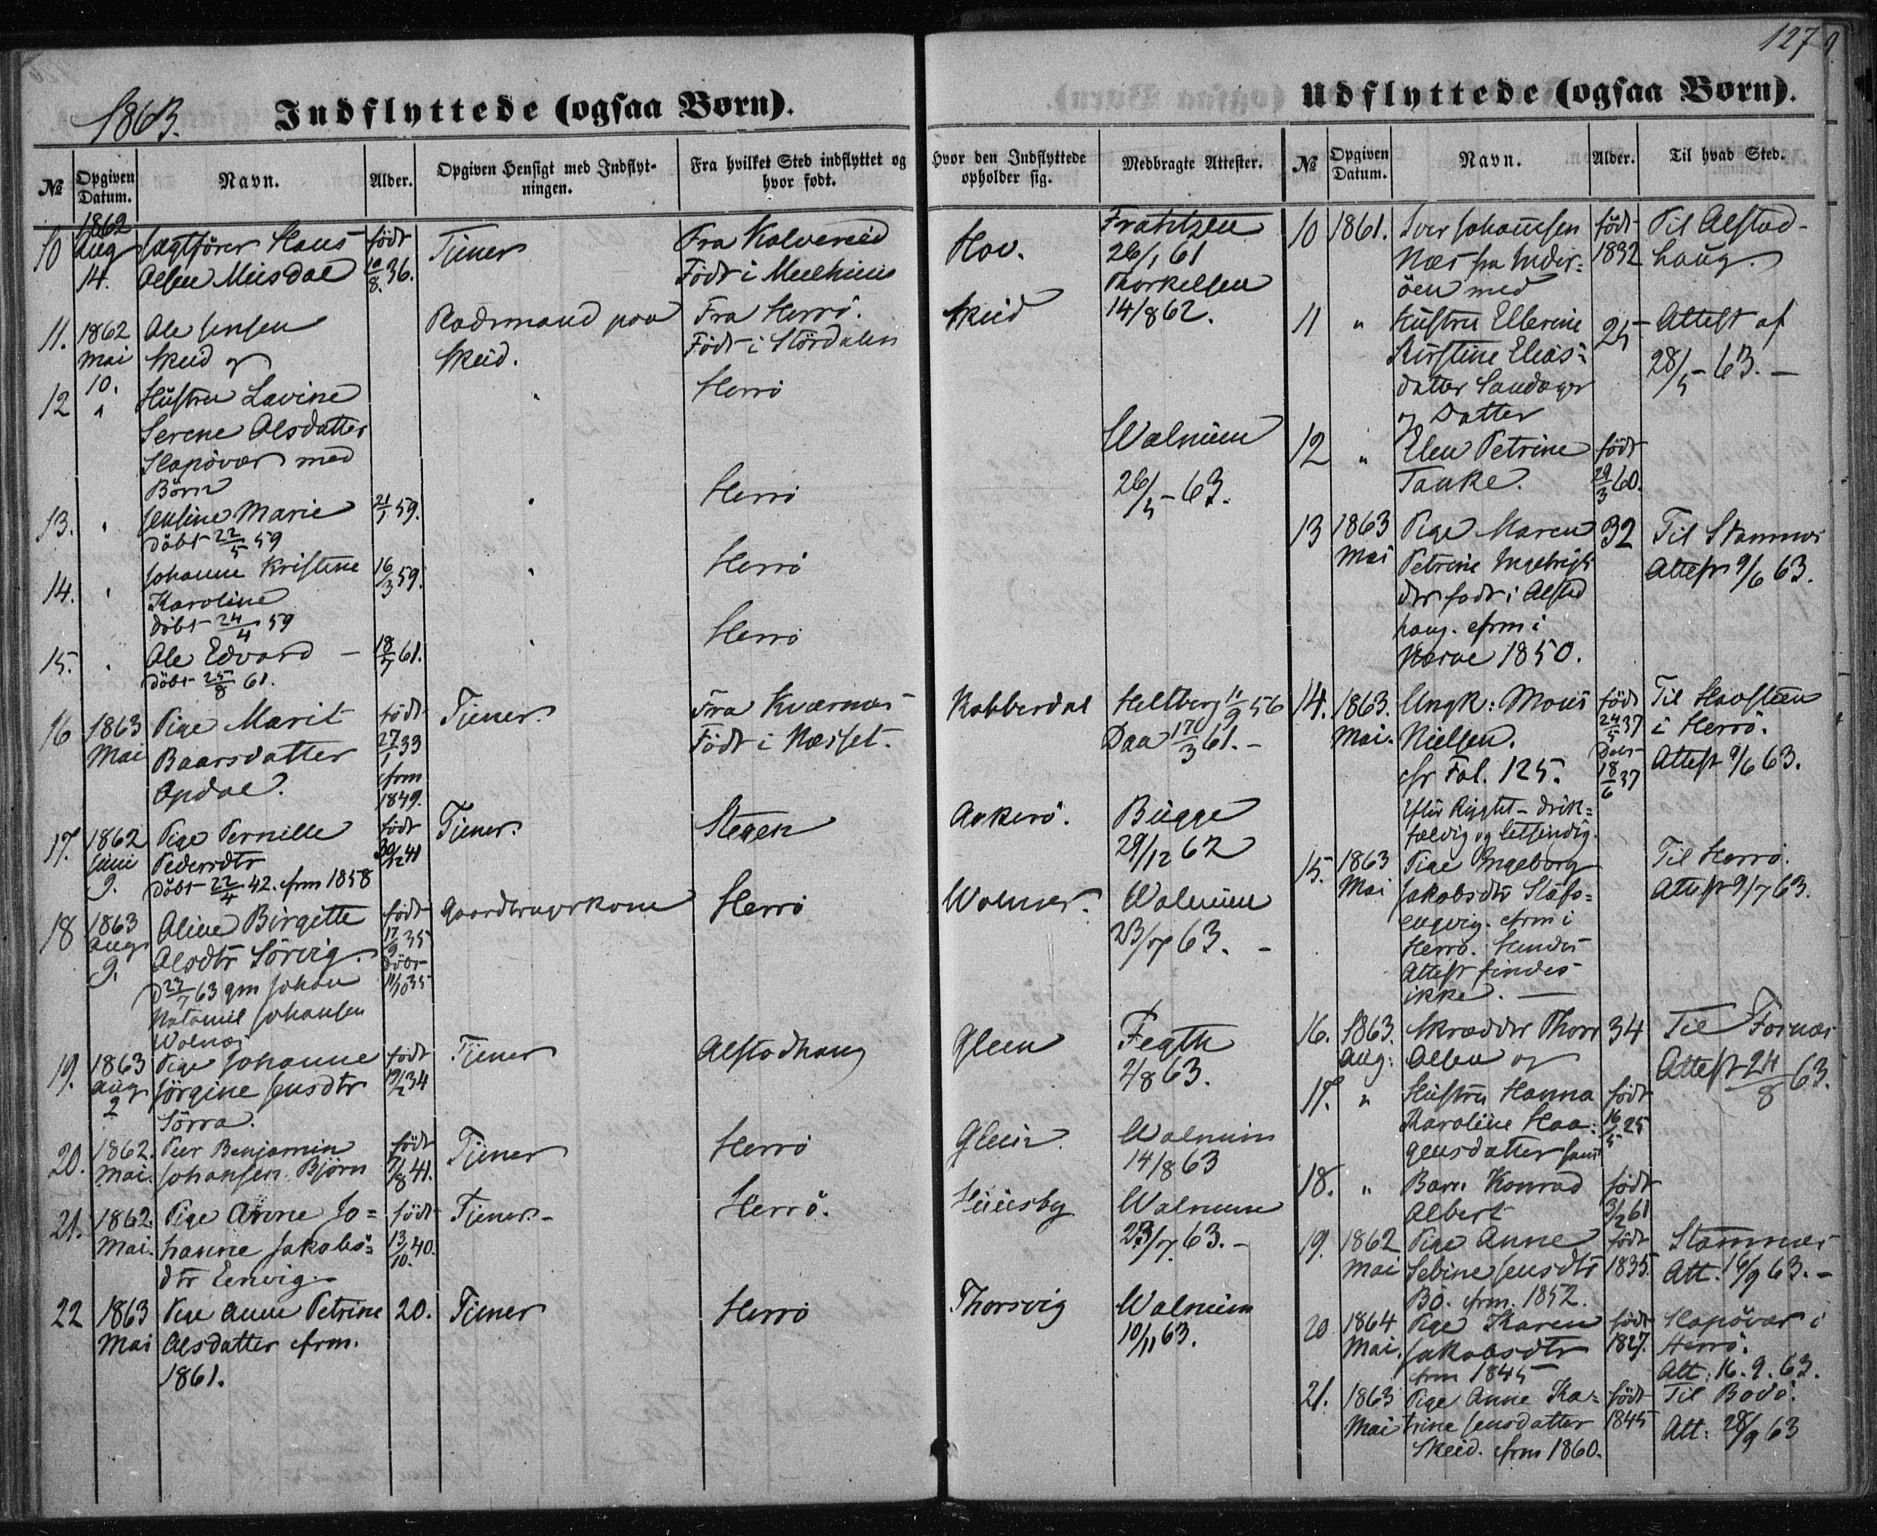 127
1863.
Indflyttede (ogsaa Børn).
Udflyttede (ogsaa Børn).
№
Opgiven Datum.
Navn.
Alder.
Opgiven Hensigt med Indflyt-
ningen.
Fra hvilket Sted indflyttet og
hvor født.
Hvor den Indflyttede
opholder sig.
Medbragte Attester.
№
Opgiven Datum.
Navn.
Alder.
Til hvad Sted.
10 1862 Aug 14.
Jægtfører Hans
Olsen Miisdal
født 10/8 36.
Tjener
Fra
Født i
Hov.
Frantzen
26/1 61
Thorkelsen
14/8 62.
11. 1862 Mai 10.
Ole Jensen
Skeid og
Raadmand paa
Skeid.
Fra Herrö.
Født i Stördalen
Skeid
12 "
Hustru Lavine
Serene Olsdatter
Slapövær med
Börn
Herrö
Walnum
26/5 - 63.
13. "
Jensine Marie
döbt 22/5 59
59.
Herrö
14. "
Johanne Kristine
Karoline
döbt 24/4 59
16/3 59.
Herrö
15. "
Ole Edvard -
döbt 25/8 61.
18/7 61.
Herrö
16 1863 Mai
Pige Marit
Baarsdatter
Opdal.
født 27/1 33
cfrm 1849.
Tjener.
Fra Kværnæs
Født i Næsset.
Kobberdal
Heltberg 11/9 56
Daa 61. -
17. 1862 Juni 9.
Pige Pernille
Pedersdtr
Döbt 22/4 42. cfrm 1858
født 30/12 41
Tjener.
Stegen
Aakerö.
Bugge
29/12 62
18 1863 Aug 9.
Aline Birgitte
Olsdtr Sörvig.
D 27/7 63 gm Johan
Natanael Johansen
Wolnæs
født 17/9 35
döbt 11/10 35
Gaardbrugerkone
Herrö
Wolnæs.
Walnum
23/7 63. -
19. 1863 Aug 2
Pige Johanne
Jörgine Jensdtr
Sörra.
født 19/2 34
Tjener
Alstadhaug
Glein
Fegth
2/8 63.
20. 1862. Mai.
Peer Benjamin
Johansen Björn
født 7/8 41.
Tjener
Herrö
Glein
Walnum
14/8 63
21. 1862. Mai.
Pige Anne Jo=
hanne Jakobs=
dtr Envig.
født 13/10. 40.
Tjener. -
Herrö.
Huusby
Walnum
23/7. 63. -
22 1863 Mai
Pige Anne Petrine
Olsdatter cfrm.
1861.
20.
Tjener
Herrö
Thorsvig
Walnum
10/11 63.
10 1861.
Iver Johannsen
Næs fra Inder=
öen med
født 1832
Til Alstad-
haug.
11 "
Hustru Ellerine
Kirstine Elias=
datter Sandager
og Datter
25
Attest af
28/5 - 63. -
12 "
Elen Petrine
Tanke.
født 29/3 60.
13 1863 Mai
Pige Maren
Petrine Ingebrigt
dtr født i Alstad
haug. cfrm i
Herøe 1850.
32
Til Stamnæs
Attest 9/6 63.
14. 1863. Mai.
Ungk: Mons
Nielsen.
cfr Fol. 125.
Efter Rygtet - drik=
fældig og letsindig.
født 24/5 37
Döbt 18/6 37
Til Havsteen
i Herrö.
Attest 9/6 63.
15. 1863 Mai
Pige Ingeborg
Jakobsdtr
cfrm i
Herrö. Hendes
Attest findes
ikke. -
Til Herrö.
Attest 9/7 63.
16. 1863. Aug:
Skrædder Thor
Olsen og
34
Til Fornæs
Attest 24/8 63.
17. "
Hustru Hanna
Karoline Haa=
gensdatter samt
født 16/5 25
18. "
Barn Konrad
Albert
født 3/2 61
19. 1862 Mai
Pige Anne
Sebine Jensdtr
Bö. cfrm. 1852.
født 1835.
Stamnæs
Att. 16/9 63. -
20 1864 Mai.
Pige Karen
Jakobsdtr
cfrm 1845
født 1827.
Slapövær i
Herrö.
Att: 16. 9. 63.
21. 1863 Mai
Pige Anne Ka=
trine Jensdatter
Skeid. cfrm 1860.
født 1845
Til Bodö.
Att: 28/9 63